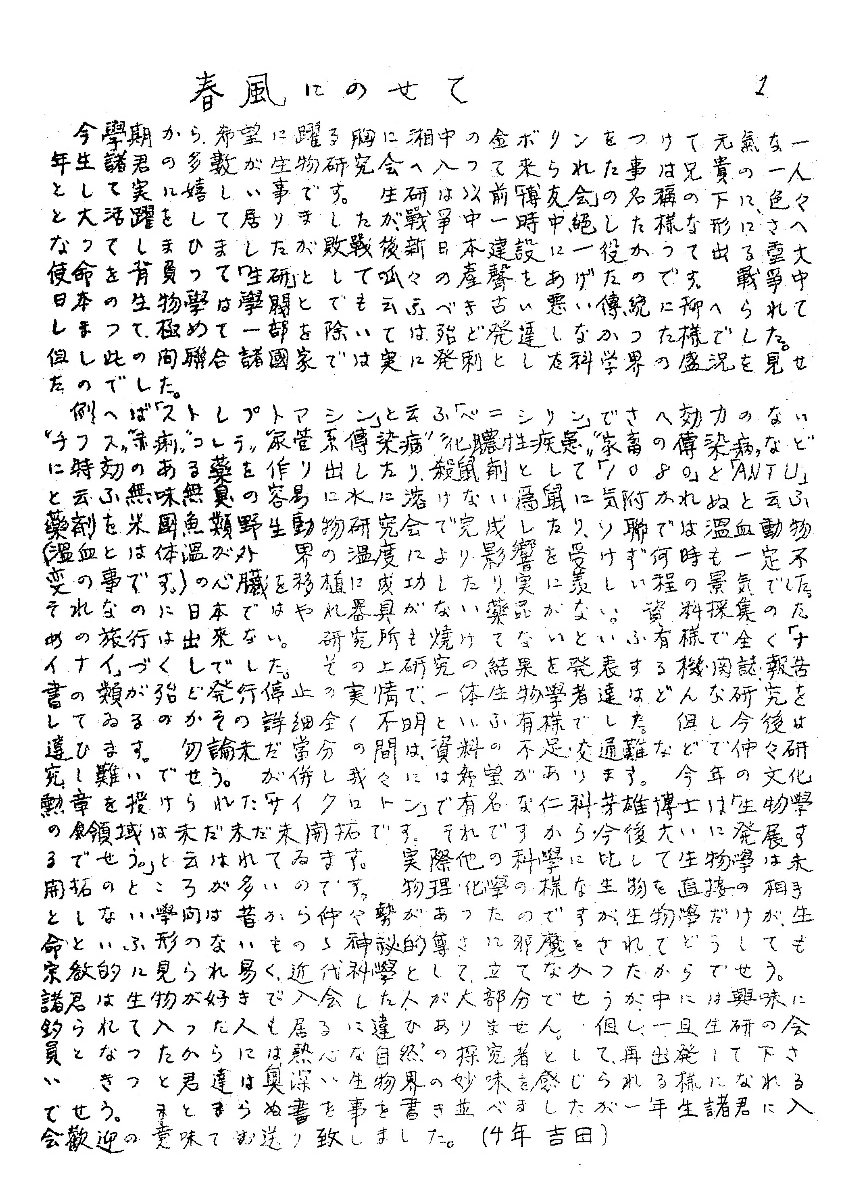 春風にのせて
1
今學期から、希望に躍る胸に湘中の金ボタンをつけて元氣な一
年生諸君の多數が生物研究会へ入って来られた事は
として実に嬉しい事です。生研は以前「博友会」の名称の下に、色々
大活躍をして居りましたが戦争中一時中絶の様な形
となつてしまひました。が敗戦後新日本建設の一役かつて出る
使命を背負つて「生研」として産聲をあげたのです。戦
日本の生物學は醫學を除いては殆ど発達しなかつた様でした。
但し此の間聯合諸國家では実に発刺とした科学界の盛況を見せ
たのでした。
例へば「ストレプトマイシン」と云ふ「ペニシリン」でさへ効力のない
"チフス" "赤痢" "コレラ" "尿管傳染病" "化膿性疾患" "家畜の傳染病"など
に特効ある薬を作り出したり、殺鼠剤として「1080」と「ANTU」
と云ふ無味無臭の容易に水に溶けない為鼠に気附かれぬと云ふ
薬剤を米國魚類野生動物研究会で完成したり、聯では温血動物
(温血とは体温が外界の温度により影響を受けず何時も一定不
変の事です。)の心臓を移植に成功したり実に羨しい程の景気でした。
それなのに日本ではやれ器具がない薬品がない。資料採集のた
めの旅行は出来ない。研究所も焼けてないと云ふ有様で全く「ナ
イナイ」づくしでした。その上研究の結果を発表する機関誌、報告
書類が殆ど発行停止の実情で、一体生物學者達はどんな研究を
してゐるのか詳細の全く不明と云ふ有様でした。但し今後は
違ひます。勿論未だ當分の間は資料不足、交通難などで仲々研
究し難いでせうが、併し我々には希望があります。今年の文化
勲章を授けられた「サイクロトン」で有名な仁科芳雄博士は「生物學
の領域は未だ未だ未開拓です。それですから今後大いに発展す
るでせう。」と云はれてゐます。実際他の科學に比して生物學は未
開拓のところが多いのです。物理、化學の様に
といふ學問は昔から仲々勢があつたのですが、生物學だけが生
命
宗教的に見られ易く、近代科學として
諸君は生物が好きで入会した人が大部分でせうが、中には興味に
釣られて入つた人も居るに違ひありません。但し、一旦生研の会
員となつたからには熱心に自然の探究者として、再出発して下さ
い。きつと君達は奥深い生物界の妙味を感じられる様になれる
でせう。まとまらぬ事を書き並べましたが一年生諸君に入
会歓迎の意味でお送り致しました。(4年 吉田)